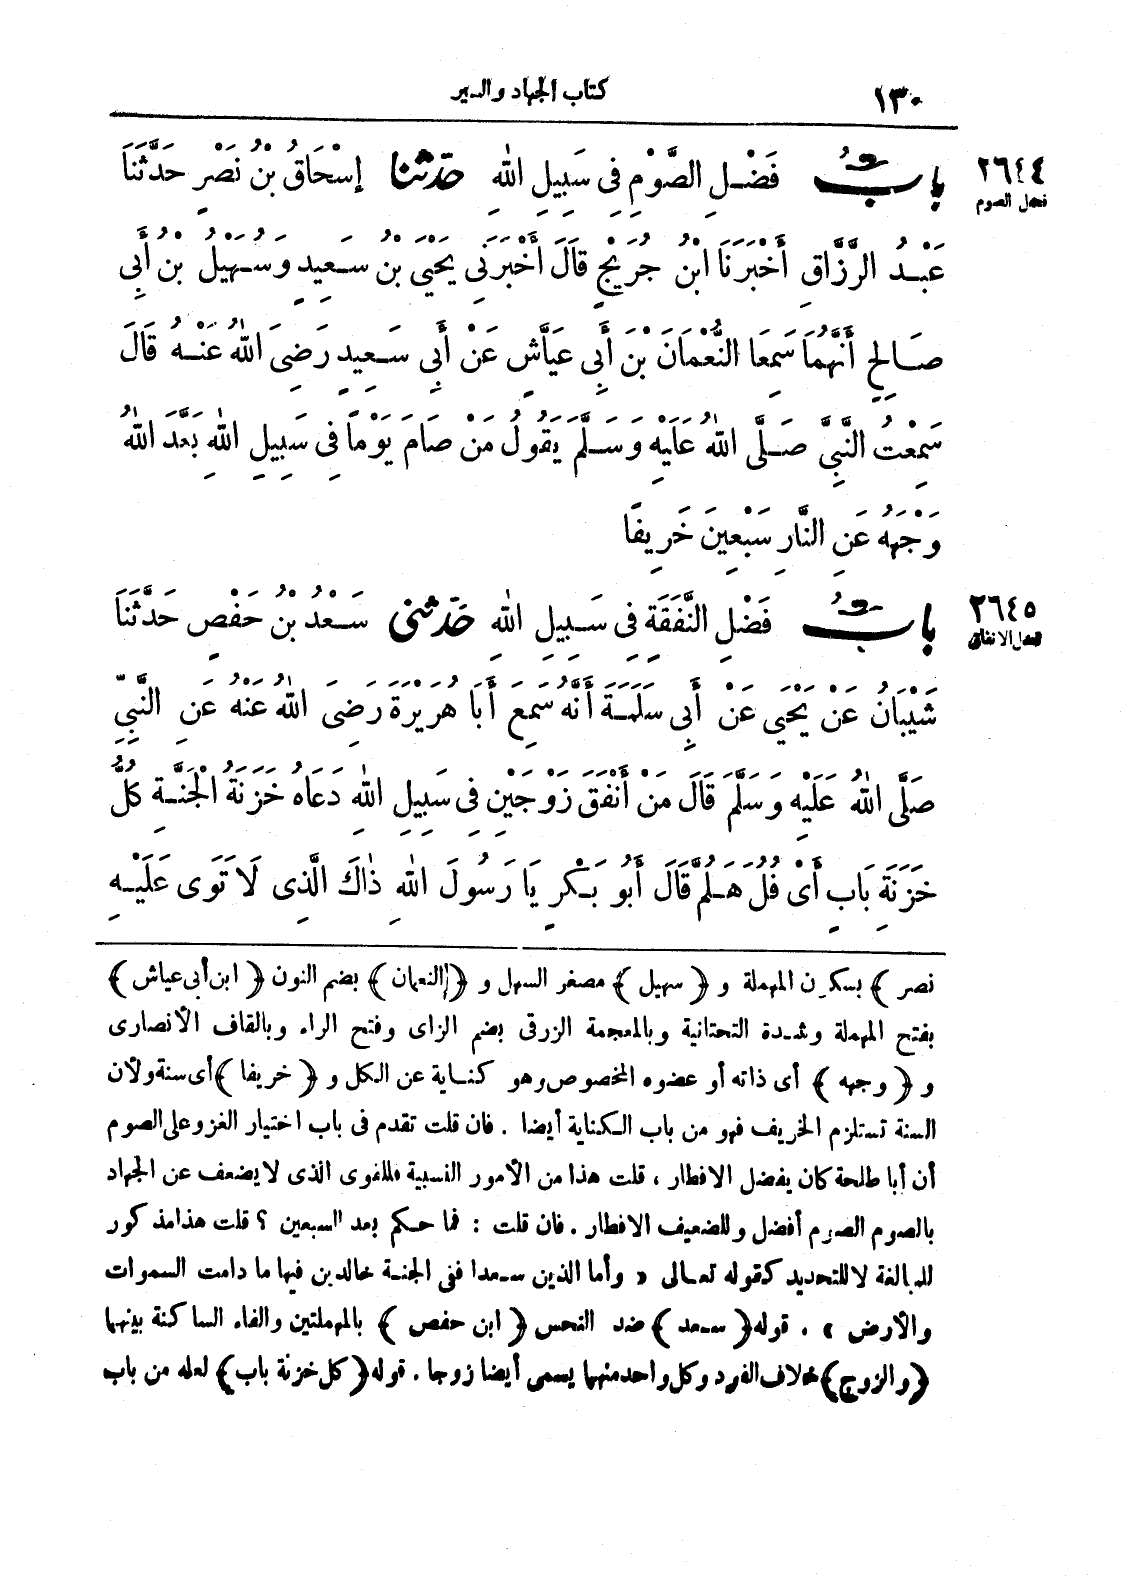 ١٣٠ كتاب الجهاد والسير
٢٦٤٤ بَابُ فَضْلِ الصَّوْمِ فِي سَبِيلِ اللهِ حَدَّثَنَا إِسْحَاقُ بْنُ نَصْرٍ حَدَّثَنَا
فضل الصوم
عَبْدُ الرَّزَّاقِ أَخْبَرَنَا ابْنُ جُرَيْجٍ قَالَ أَخْبَرَنِي يَحْيَى بْنُ سَعِيدٍ وَسُهَيْلُ بْنُ أَبِي
صَالِحٍ أَنَّهُمَا سَمِعَا النُّعْمَانَ بْنَ أَبِي عَيَّاشٍ عَنْ أَبِي سَعِيدٍ رَضِيَ اللهُ عَنْهُ قَالَ
سَمِعْتُ النَّبِيَّ صَلَّى اللهُ عَلَيْهِ وَسَلَّمَ يَقُولُ مَنْ صَامَ يَوْمًا فِي سَبِيلِ اللهِ بَعَّدَ اللهُ
وَجْهَهُ عَنِ النَّارِ سَبْعِينَ خَرِيفًا
٢٦٤٥ بَابُ فَضْلِ النَّفَقَةِ فِي سَبِيلِ اللهِ حَدَّثَنِي سَعْدُ بْنُ حَفْصٍ حَدَّثَنَا
فضل الانفاق
شَيْبَانُ عَنْ يَحْيَى عَنْ أَبِي سَلَمَةَ أَنَّهُ سَمِعَ أَبَا هُرَيْرَةَ رَضِيَ اللهُ عَنْهُ عَنِ النَّبِيِّ
صَلَّى اللهُ عَلَيْهِ وَسَلَّمَ قَالَ مَنْ أَنْفَقَ زَوْجَيْنِ فِي سَبِيلِ اللهِ دَعَاهُ خَزَنَةُ الْجَنَّةِ كُلُّ
خَزَنَةِ بَابٍ أَيْ فُلُ هَلُمَّ قَالَ أَبُو بَكْرٍ يَا رَسُولَ اللهِ ذَاكَ الَّذِي لَا تَوَى عَلَيْهِ
نصر ﴾ بسكون المهملة و ﴿ سهيل ﴾ مصغر السهل و ﴿ النعمان ﴾ بضم النون ﴿ ابن أبى عياش ﴾
بفتح المهملة وشدة التحتانية وبالمعجمة الزرقى بضم الزاى وفتح الراء وبالقاف الأنصارى
و ﴿ وجهه ﴾ أى ذاته أو عضوه المخصوص وهو كناية عن الكل و ﴿ خريفا ﴾ أى سنة ولأن
السنة تستلزم الخريف فهو من باب الكناية أيضا . فان قلت تقدم فى باب اختيار الغزو على الصوم
أن أبا طلحة كان يفضل الافطار ، قلت هذا من الأمور النسبية فللقوى الذى لا يضعف عن الجهاد
بالصوم الصوم أفضل وللضعيف الافطار . فان قلت : فما حكم بعد السبعين ؟ قلت هذا مذكور
للمبالغة لا للتحديد كقوله تعالى « وأما الذين سعدوا ففى الجنة خالدين فيها ما دامت السموات
والأرض » . قوله ﴿ سعد ﴾ ضد النحس ﴿ ابن حفص ﴾ بالمهملتين والفاء الساكنة بينهما
﴿ والزوج ﴾ خلاف الفرد وكل واحد منهما يسمى أيضا زوجا . قوله ﴿ كل خزنة باب ﴾ لعله من باب